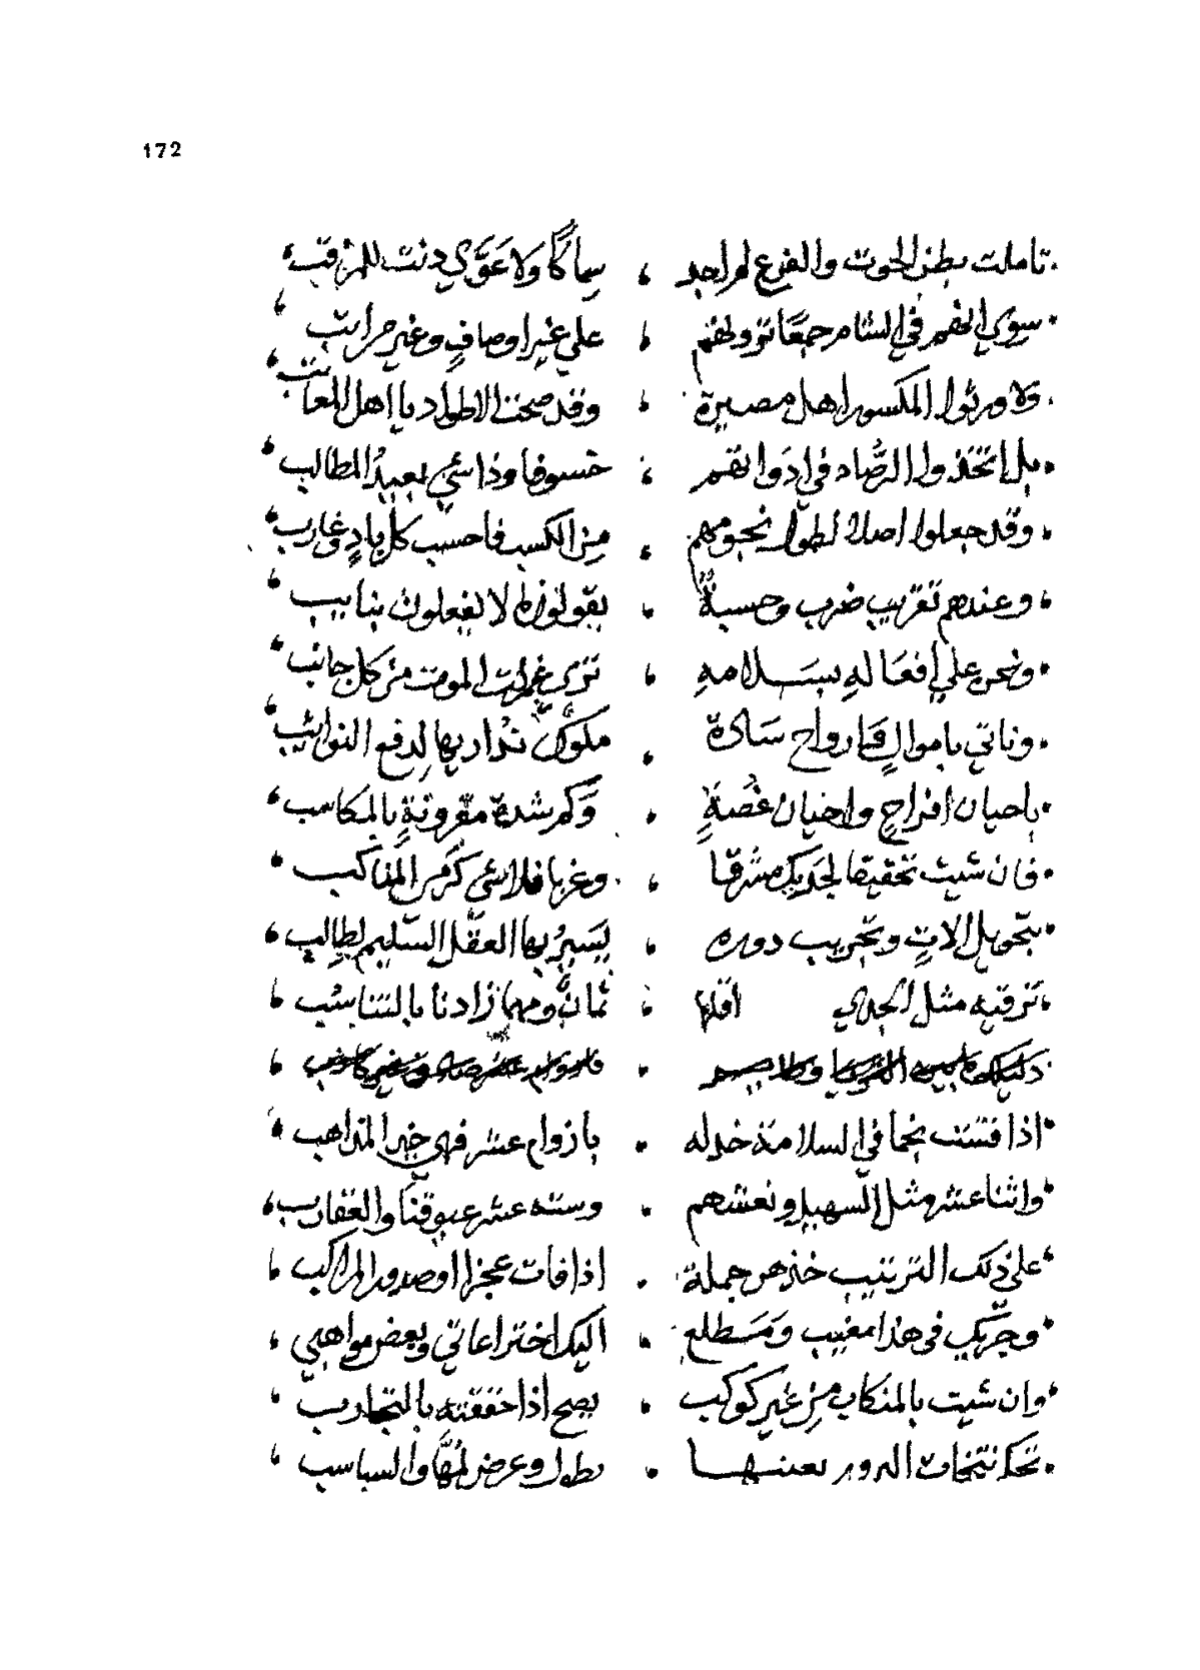 172
تاملت بطن الحوت والفرغ لم اجد ، سماكا ولا عوّى دنت للمراقب
سوى انهم في الشام جمعا تزولهم ، على غير اوصاف وغير مراتب
ولا ورثوا المكسور اهل مصيرة ، وقد صحت الاطواد يا اهل المعاتب
بل اتخذوا الرصاد في ادوا نقم ، خسوفا وذا شي بعيد المطالب
وقد جعلوا اصلا لطول نجومهم ، من الكسب فاحسب كل باد وغارب
وعندهم تقريب ضرب وحسبة ، يقولون لا يفعلون بنايب
ونحن على افعاله بسلامه ، نرى غمرات الموت من كل جانب
وناتي باموال وارواح سادة ، ملوك نداريها لدفع النوائب
باحيان افراح واحيان غصة ، وكم شدة مقرونة بالمكاسب
فان شيت تحقيقا لجديك مشرقا ، وغربا فلا شي كرمى المناكب
بتحويل الات وتجريب دوره ، يسير بها العقل السليم لطالب
ترقيه مثل الجدي اقلها ، ثمان ومهما زادنا بالتناسب
اذا فتشت نجما في السلامة خذ له ، بازوام عشر فهي خير المذاهب
واثنا عشر مثل السهيل ونعشهم ، وسته عشر عيوقنا والعقارب
على ذلك الترتيب خذهن جملة ، اذا فات عجزا او صدور المراكب
وجربك في هذا مغيب ومطلع ، اليك اختراعاتي وبعض مواهبي
وان شيت بالمنكاب من غير كوكب ، يصح اذا حققته بالتجارب
تحك نتخات الدور بعينها ، بطول وعرض لمها والسباسب